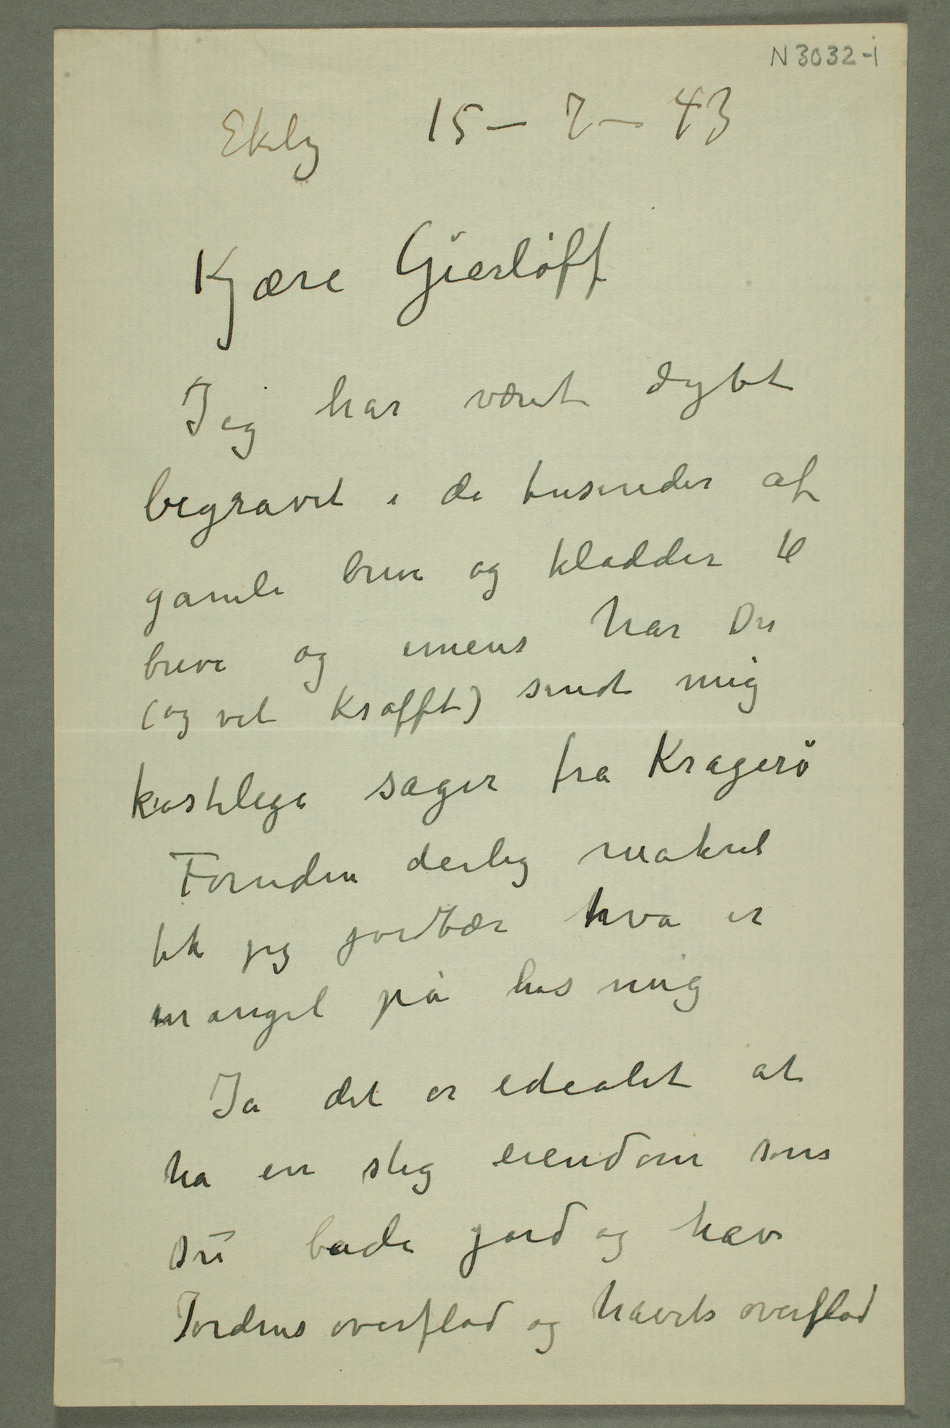 N 3032-i
Ekely 15 – 7 – 43
Kjære Gierløff
Jeg har været dybt
begravet i de tusinder af
gamle breve og kladder til
breve og imens har Du
(og vel Krafft) sendt mig
kostelige sager fra Kragerö
Foruden deilig makrel
fik jeg jordbær hva er
mangel på hos mig
Ja det er idealet at
ha en slig eiendom som
Du både jord og hav
Jordens overflod og havets overflod